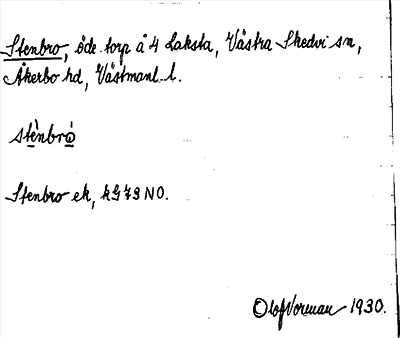 Stenbro, öde torp å 4 Laksta, Västra Skedvi sn,
Åkerbo hd, Västmanl. l.
stènbrò
Stenbro ek, kG 73 NO.
Olof Norman 1930.